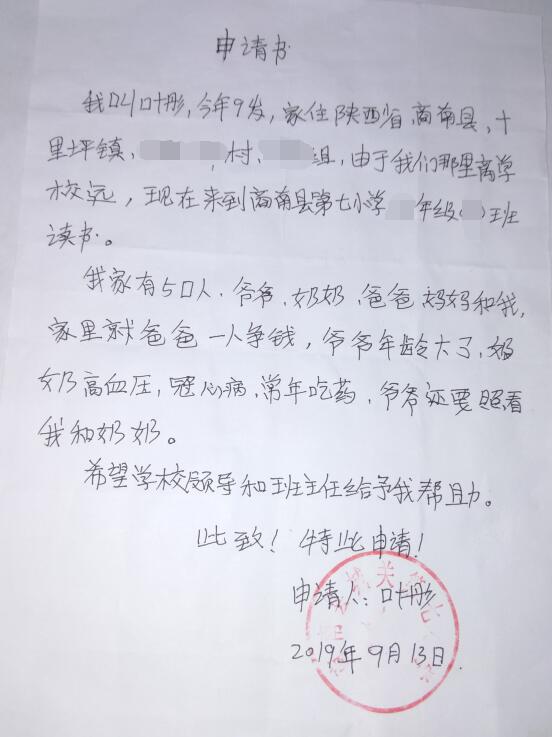 申请书
我叫叶彤,今年9岁,家住陕西省,商南县,十
里坪镇、村、组,由于我们那里离学
校远,现在来到商南县第七小学年级()班
读书。
我家有5口人、爷爷、奶奶、爸爸妈妈和我,
家里就爸爸一人争钱,爷爷年龄大了、奶
奶高血压,冠心病,常年吃药,爷爷还要照看
我和奶奶。
希望学校领导和班主任给予我帮助。
此致!特此申请!
申请人:叶彤
2019年9月13日.